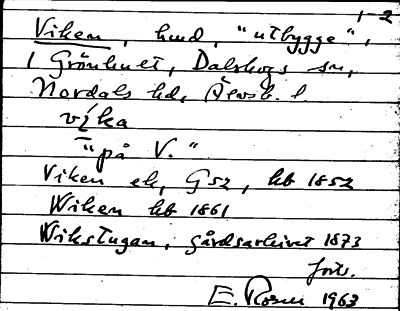 1-2
Viken, hmd, "utbygge",
i Grönhuet, Dalskogs sn,
Nordals hd, Älvsb. l
víka
"på V."
Viken ek, G52, hb 1852
Wiken hb 1861
Wikstugan, gårdsarkivet 1873
forts.
E. Rosen 1963